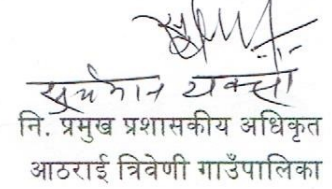 सुर्यमान यक्सो
नि. प्रमुख प्रशासकीय अधिकृत
आठराई त्रिवेणी गाउँपालिका